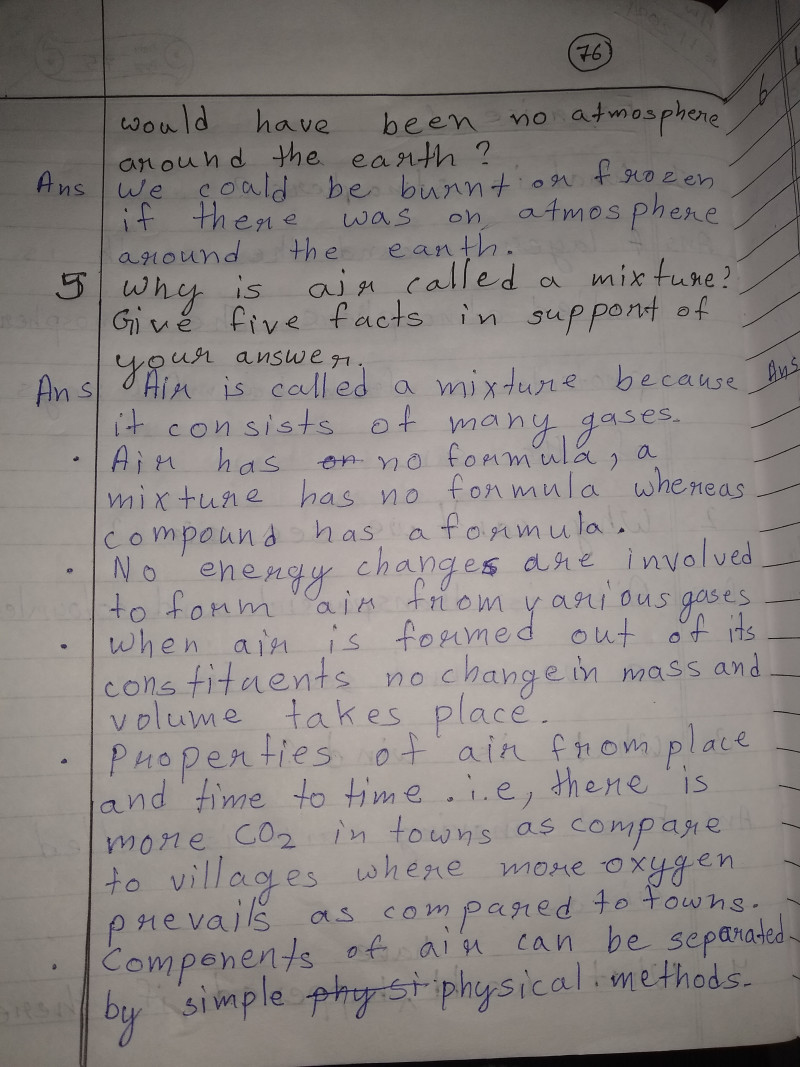 76
would have been no atmosphere
around the earth?
Ans We could be burnt or frozen
if there was on atmosphere
around the earth.
5 Why is air called a mixture?
Give five facts in support of
your answer.
Ans Air is called a mixture because
it consists of many gases.
• Air has on no formula, a
mixture has no formula whereas
compound has a formula.
• No energy changes are involved
to form air from various gases
• When air is formed out of its
constituents no change in mass and
volume takes place.
• Properties of air from place
and time to time . i.e, there is
more CO2 in towns as compare
to villages where more oxygen
prevails as compared to towns.
• Components of air can be separated
by simple physi physical methods.
6
Ans